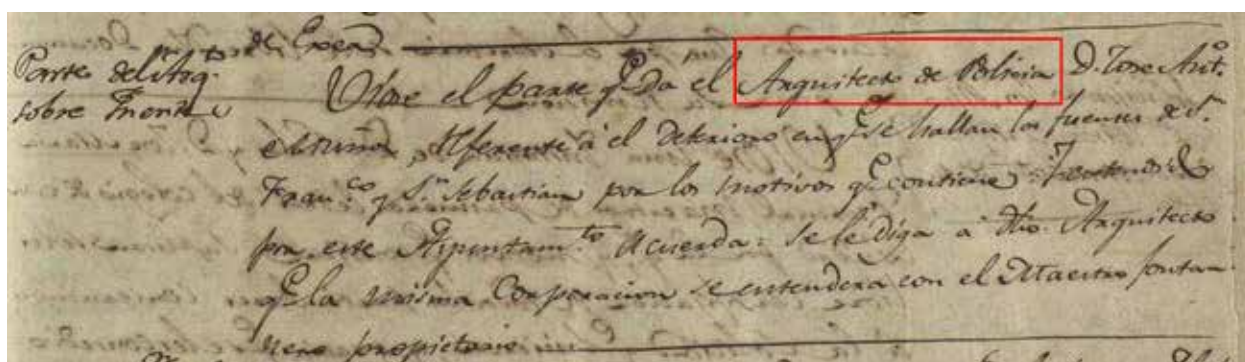 de Exped.
Parte del Arq.to
sobre Fuente
Viose el parte q.e da el Arquitecto de Policia D. Jose Ant.o
Referente à el deterioro en q.e se hallan las fuentes de S.n
Fran.co y S.n Sebastian por los motivos q.e contiene:
por este Ayuntam.to Acuerda: Se le diga a dho. Arquitecto
q.e la misma Corporacion se entendera con el Maestro fontan
nero propietario